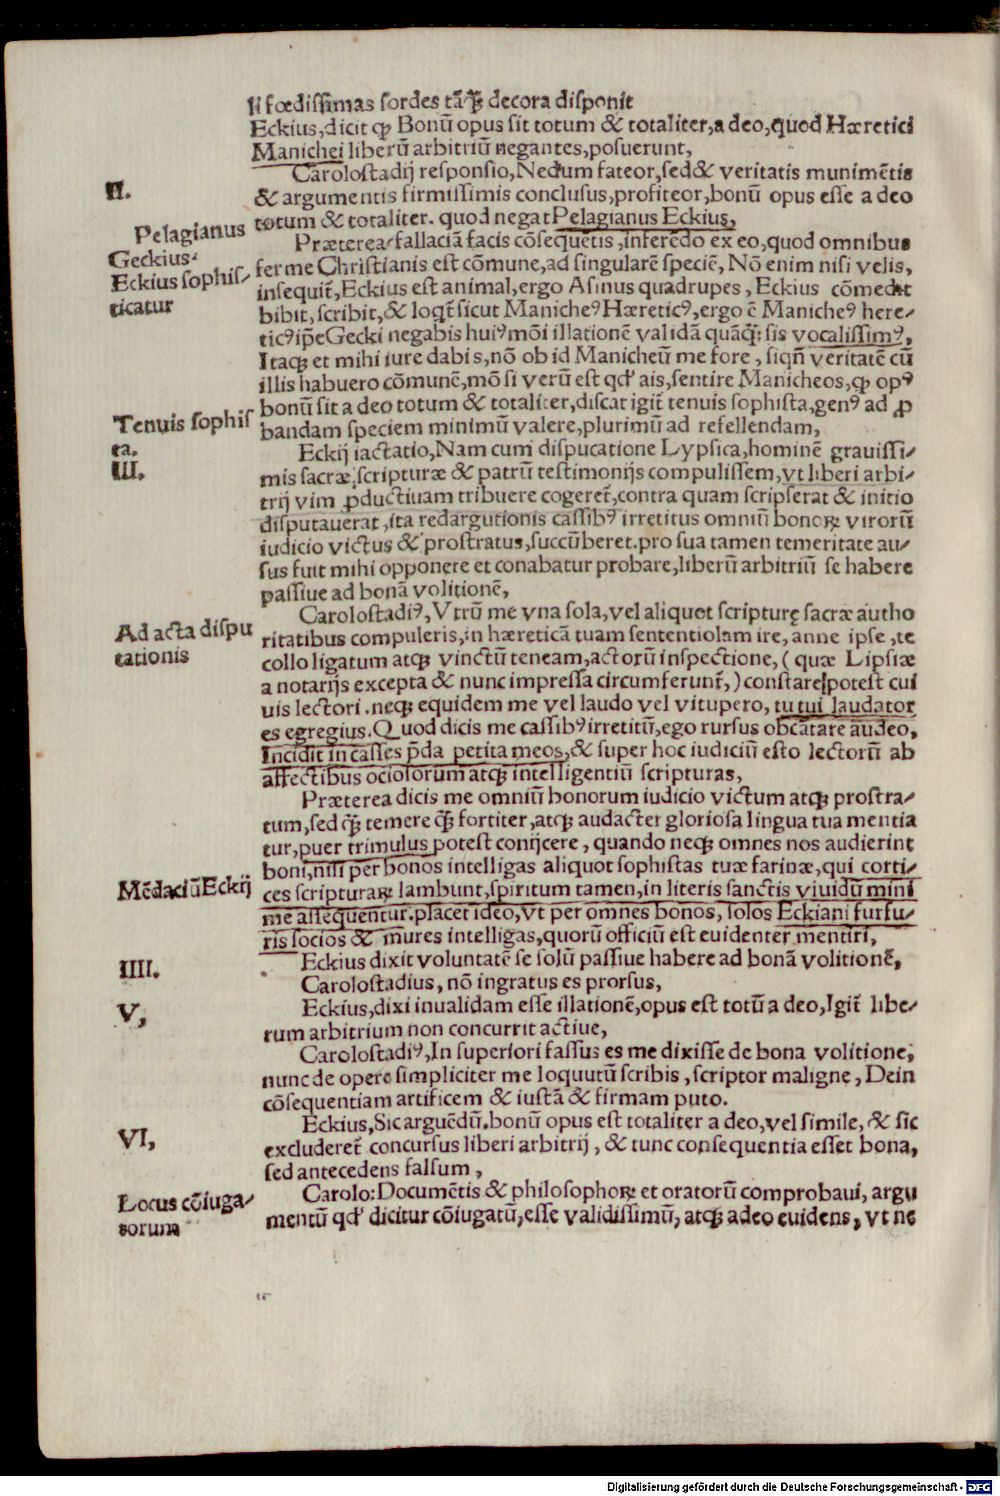 li fœdissimas sordes tãꝙ̃ decora disponit
Eckius,dicit ꝙ Bonũ opus sit totum & totaliter,a deo,quod Hæretici
Manichei liberũ arbitriũ negantes,posuerunt,
II.
Carolostadij responsio,Nedum fateor,sed& veritatis munimẽtis
& argumentis firmissimis conclusus,profiteor,bonũ opus esse a deo
totum & totaliter. quod negat Pelagianus Eckius,
Pelagianus
Geckius.
Eckius sophis⸗
ticatur
Præterea fallaciã facis cõsequẽtis,inferẽdo ex eo,quod omnibus
ferme Christianis est cõmune,ad singularẽ speciẽ, Nõ enim nisi velis,
insequit̃,Eckius est animal,ergo Asinus quadrupes, Eckius cõmedit
bibit,scribit,& loqt̃ sicut Manicheꝰ Hæreticꝰ,ergo ẽ Manicheꝰ here⸗
ticꝰ ip̃e Gecki negabis huiꝰmõi illationẽ validã quãꝙ̃ sis vocalissimꝰ,
Itaqȝ et mihi iure dabis,nõ ob id Manicheũ me fore, siqñ veritatẽ cũ
illis habuero cõmunẽ,mõ si verũ est qd̃ ais,sentire Manicheos,ꝙ opꝰ
bonũ sit a deo totum & totaliter,discat igit̃ tenuis sophista,genꝰ ad ꝓ
bandam speciem minimũ valere,plurimũ ad refellendam,
Tenuis sophis
ta.
III.
Eckij iactatio,Nam cum disputatione Lypsica,hominẽ grauissi⸗
mis sacræ scripturæ & patrũ testimonijs compulissem,vt liberi arbi⸗
trij vim ꝓductiuam tribuere cogeret̃,contra quam scripserat & initio
disputauerat,ita redargutionis cassibꝰ irretitus omniũ bonoꝝ virorũ
iudicio victus & prostratus,succũberet.pro sua tamen temeritate au⸗
sus fuit mihi opponere et conabatur probare,liberũ arbitriũ se habere
passiue ad bonã volitionẽ,
Ad acta dispu
tationis
Carolostadiꝰ,Vtrũ me vna sola,vel aliquot scripturę sacræ autho
ritatibus compuleris,in hæreticã tuam sententiolam ire,anne ipse,te
collo ligatum atqȝ vinctũ teneam,actorũ inspectione,( quæ Lipsiæ
a notarijs excepta & nunc impressa circumferunt̃,) constare potest cui
uis lectori.neqȝ equidem me vel laudo vel vitupero, tu tui laudator
es egregius.Quod dicis me cassibꝰ irretitũ,ego rursus obcãtare audeo,
Incidit in casses p̃da petita meos,& super hoc iudiciũ esto lectorũ ab
affectibus ociosorum atqȝ intelligentiũ scripturas,
Præterea dicis me omniũ bonorum iudicio victum atqȝ prostra⸗
tum,sed ꝙ̃ temere ꝙ̃ fortiter,atqȝ audacter gloriosa lingua tua mentia
tur,puer trimulus potest conijcere, quando neqȝ omnes nos audierint
boni,nisi per bonos intelligas aliquot sophistas tuæ farinæ,qui corti⸗
ces scripturaꝝ lambunt,spiritum tamen,in literis sanctis viuidũ mini
me assequentur.placet ideo,vt per omnes bonos, solos Eckiani furfu⸗
ris socios & mures intelligas,quorũ officiũ est euidenter mentiri,
Mẽdaciũ Eckij
IIII.
Eckius dixit voluntatẽ se solũ passiue habere ad bonã volitionẽ,
Carolostadius, nõ ingratus es prorsus,
V,
Eckius,dixi inualidam esse illationẽ,opus est totũ a deo,Igit̃ libe⸗
rum arbitrium non concurrit actiue,
Carolostadiꝰ,In superiori fassus es me dixisse de bona volitione,
nunc de opere simpliciter me loquutũ scribis, scriptor maligne, Dein
cõsequentiam artificem & iustã & firmam puto.
VI,
Eckius,Sic arguẽdũ.bonũ opus est totaliter a deo,vel simile, & sic
excluderet̃ concursus liberi arbitrij, & tunc consequentia esset bona,
sed antecedens falsum,
Locus cõiuga⸗
torum
Carolo:Documẽtis & philosophoꝝ et oratorũ comprobaui, argu
mentũ qd̃ dicitur cõiugatũ,esse validissimũ, atqȝ adeo euidens, vt ne
Digitalisierung gefördert durch die Deutsche Forschungsgemeinschaft - DFG